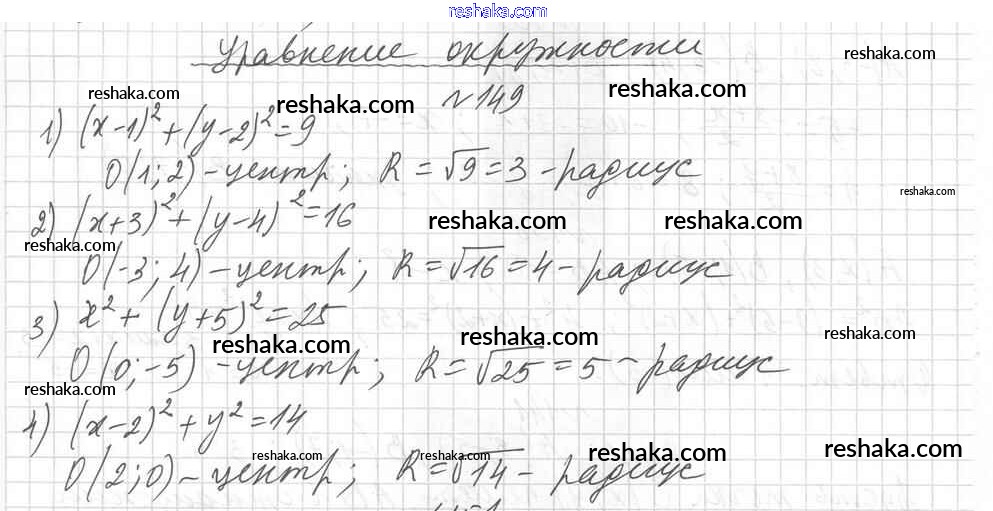 reshaka.com
Уравнение окружности
reshaka.com
reshaka.com
reshaka.com
reshaka.com
№149
1) (x-1)²+(y-2)²=9
O(1;2)-центр; R=√9=3-радиус
reshaka.com
2) (x+3)²+(y-4)²=16
reshaka.com
reshaka.com
reshaka.com
O(-3;4)-центр; R=√16=4-радиус
3) x²+(y+5)²=25
reshaka.com
reshaka.com
reshaka.com
O(0;-5)-центр; R=√25=5-радиус
reshaka.com
4) (x-2)²+y²=14
reshaka.com
reshaka.com
reshaka.com
reshaka.com
O(2;0)-центр; R=√14-радиус